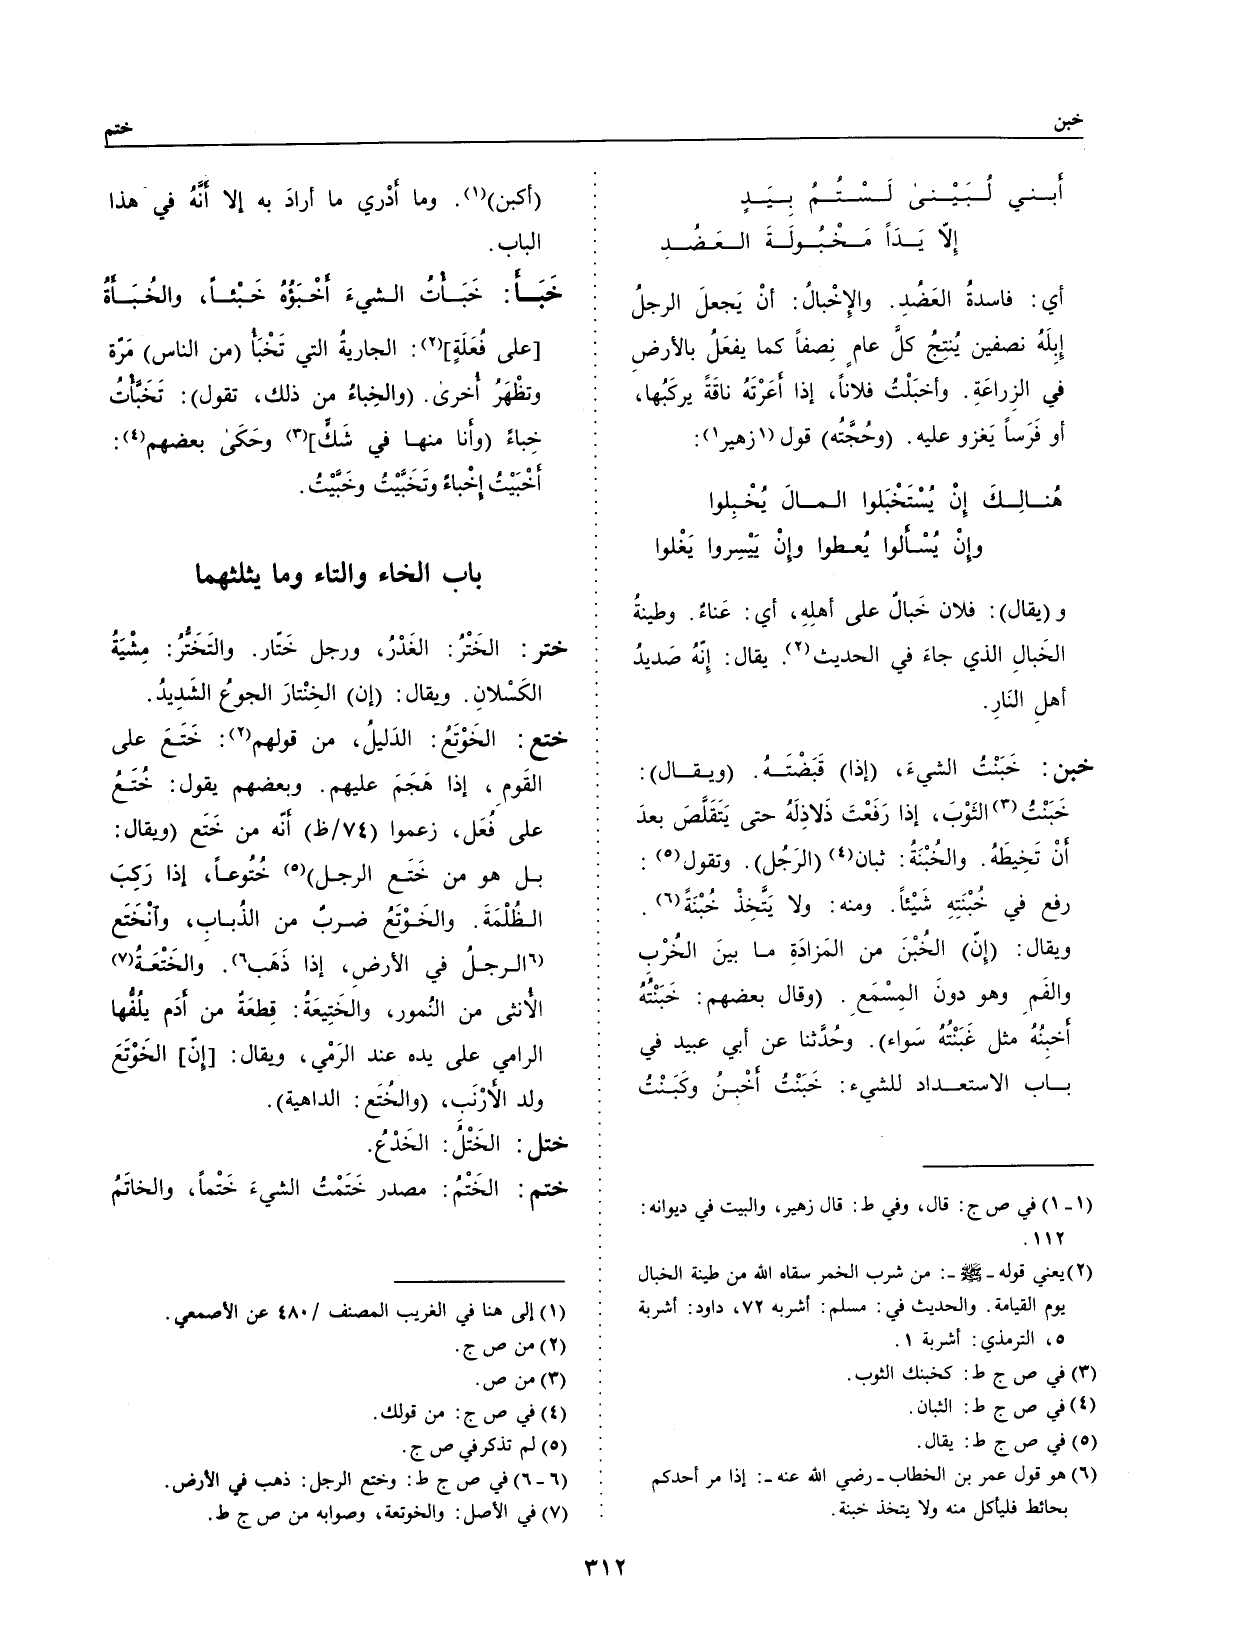 خبن
ختم
أبـني لُـبَيْـنىٰ لَـسْـتُـمُ بِـيَـدٍ
إلاّ يَـدَاً مَـخْـبُـولَـةَ الـعَـضُـدِ
أي: فاسدةُ العَضُدِ. والإخْبالُ: أنْ يَجعلَ الرجلُ
إبِلَهُ نصفين يُنتِجُ كلَّ عامٍ نِصفاً كما يفعَلُ بالأرضِ
في الزراعَةِ. وأخبَلْتُ فلاناً، إذا أعَرْتَهُ ناقَةً يركَبُها،
أو فَرَساً يَغزو عليه. (وحُجَّتُه) قول (١زهير١):
هُنـالِـكَ إنْ يُسْتَخْبَلوا المـالَ يُخْبِلوا
وإنْ يُسْـأَلوا يُعـطوا وإنْ يَيْسِروا يَغْلوا
و (يقال): فلان خَبالٌ على أهلِهِ، أي: عَناءٌ. وطينةُ
الخَبالِ الذي جاءَ في الحديث(٢). يقال: إنّهُ صَديدُ
أهلِ النَارِ.
خبن: خَبَنْتُ الشيءَ، (إذا) قَبَضْتَـهُ. (ويـقـال):
خَبَنْتُ(٣) الثَوْبَ، إذا رَفَعْتَ ذَلاذِلَهُ حتى يَتَقَلَّصَ بعدَ
أنْ تَخِيطَهُ. والخُبْنَةُ: ثبان(٤) (الرَجُل). وتقول(٥):
رفع في خُبْنَتِهِ شَيْئاً. ومنه: ولا يَتَّخِذْ خُبْنَةً(٦).
ويقال: (إنّ) الخُبْنَ من المَزادَةِ مـا بينَ الخُرْبِ
والفَمِ وهو دونَ المِسْمَعِ. (وقال بعضهم: خَبَنْتُهُ
أخبِنُهُ مثل غَبَنْتُهُ سَواء). وحُدَّثنا عن أبي عبيد في
بـاب الاستعـداد للشيء: خَبَنْتُ أخْبِـنُ وكَبَـنْتُ
(١ـ١) في ص ج: قال، وفي ط: قال زهير، والبيت في ديوانه:
١١٢.
(٢) يعني قوله ـ ﷺ ـ: من شرب الخمر سقاه الله من طينة الخبال
يوم القيامة. والحديث في: مسلم: أشربه ٧٢، داود: أشربة
٥، الترمذي: أشربة ١.
(٣) في ص ج ط: كخبنك الثوب.
(٤) في ص ج ط: الثبان.
(٥) في ص ج ط: يقال.
(٦) هو قول عمر بن الخطاب ـ رضي الله عنه ـ: إذا مر أحدكم
بحائط فليأكل منه ولا يتخذ خبنة.
(أكبن)(١). وما أَدْري ما أرادَ به إلا أَنَّهُ في هذا
الباب.
خَبَـأ: خَبَـأتُ الـشيءَ أخْبَؤُهُ خَـبْـئـاً، والخُبَـأةُ
[على فُعَلَةٍ](٢): الجاريةُ التي تَخْبَأ (من الناس) مَرّة
وتظْهَرُ أُخرىٰ. (والخِباءُ من ذلك، تقول): تَخَبَّأتُ
خِباءً (وأنا منهـا في شَكٍّ](٣) وحَكىٰ بعضهم(٤):
أخْبَيْتُ إخْباءً وتَخَبَّيْتُ وخَبَّيْتُ.
باب الخاء والتاء وما يثلثهما
ختر: الخَتْرُ: الغَدْرُ، ورجل خَتّار. والتَخَتُّرُ: مِشْيَةُ
الكَسْلانِ. ويقال: (إن) الخِتْتارَ الجوعُ الشَدِيدُ.
ختع: الخَوْتَعُ: الدَليلُ، من قولهم(٢): خَتَـعَ على
القَومِ، إذا هَجَمَ عليهم. وبعضهم يقول: خُتَـعُ
على فُعَل، زعموا (٧٤/ظ) أنّه من خَتَع (ويقال:
بـل هو من خَتَـع الرجـل)(٥) خُتُوعـاً، إذا رَكِبَ
الـظُلْمَةَ. والخَـوْتَعُ ضـربٌ من الذُبـابِ، وآنْخَتَع
(٦الـرجـلُ في الأرضِ، إذا ذَهَب٦). والخَتْعَـةُ(٧)
الأُنثى من النُمور، والخَتِيعَةُ: قِطعَةٌ من أدَم يلُفُّها
الرامي على يده عند الرَمْي، ويقال: [إنّ] الخَوْتَعَ
ولد الأَرْنَب، (والخُتَع: الداهية).
ختل: الخَتْلُ: الخَدْعُ.
ختم: الخَتْمُ: مصدر خَتَمْتُ الشيءَ خَتْماً، والخاتَمُ
(١) إلى هنا في الغريب المصنف / ٤٨٠ عن الأصمعي.
(٢) من ص ج.
(٣) من ص.
(٤) في ص ج: من قولك.
(٥) لم تذكر في ص ج.
(٦-٦) في ص ج ط: وختع الرجل: ذهب في الأرض.
(٧) في الأصل: والخوتعة، وصوابه من ص ج ط.
٣١٢